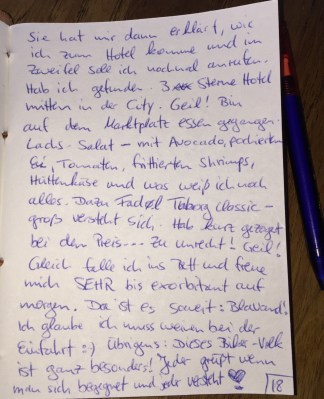 Sie hat mir dann erklärt, wie
ich zum Hotel komme und im
Zweifel soll ich nochmal anrufen.
Hab ich gefunden. 3 Sterne Hotel
mitten in der City. Geil! Bin
auf dem Marktplatz essen gegangen.
Lachs-Salat – mit Avocado, pochierten
Ei, Tomaten, frittierten Shrimps,
Hüttenkäse und was weiß ich noch
alles. Dazu Fadøl Tuborg Classic –
groß versteht sich. Hab kurz gezuckt
bei dem Preis --- zu unrecht! Geil!
Gleich falle ich ins Bett und freue
mich SEHR bis exorbitant auf
morgen. Da ist es soweit: Blåvand!
Ich glaube ich muss weinen bei der
Einfahrt :) Übrigens: Dieses Biker-Volk
ist ganz besonders! Jeder grüßt wenn
man sich begegnet und jeder versteht
18